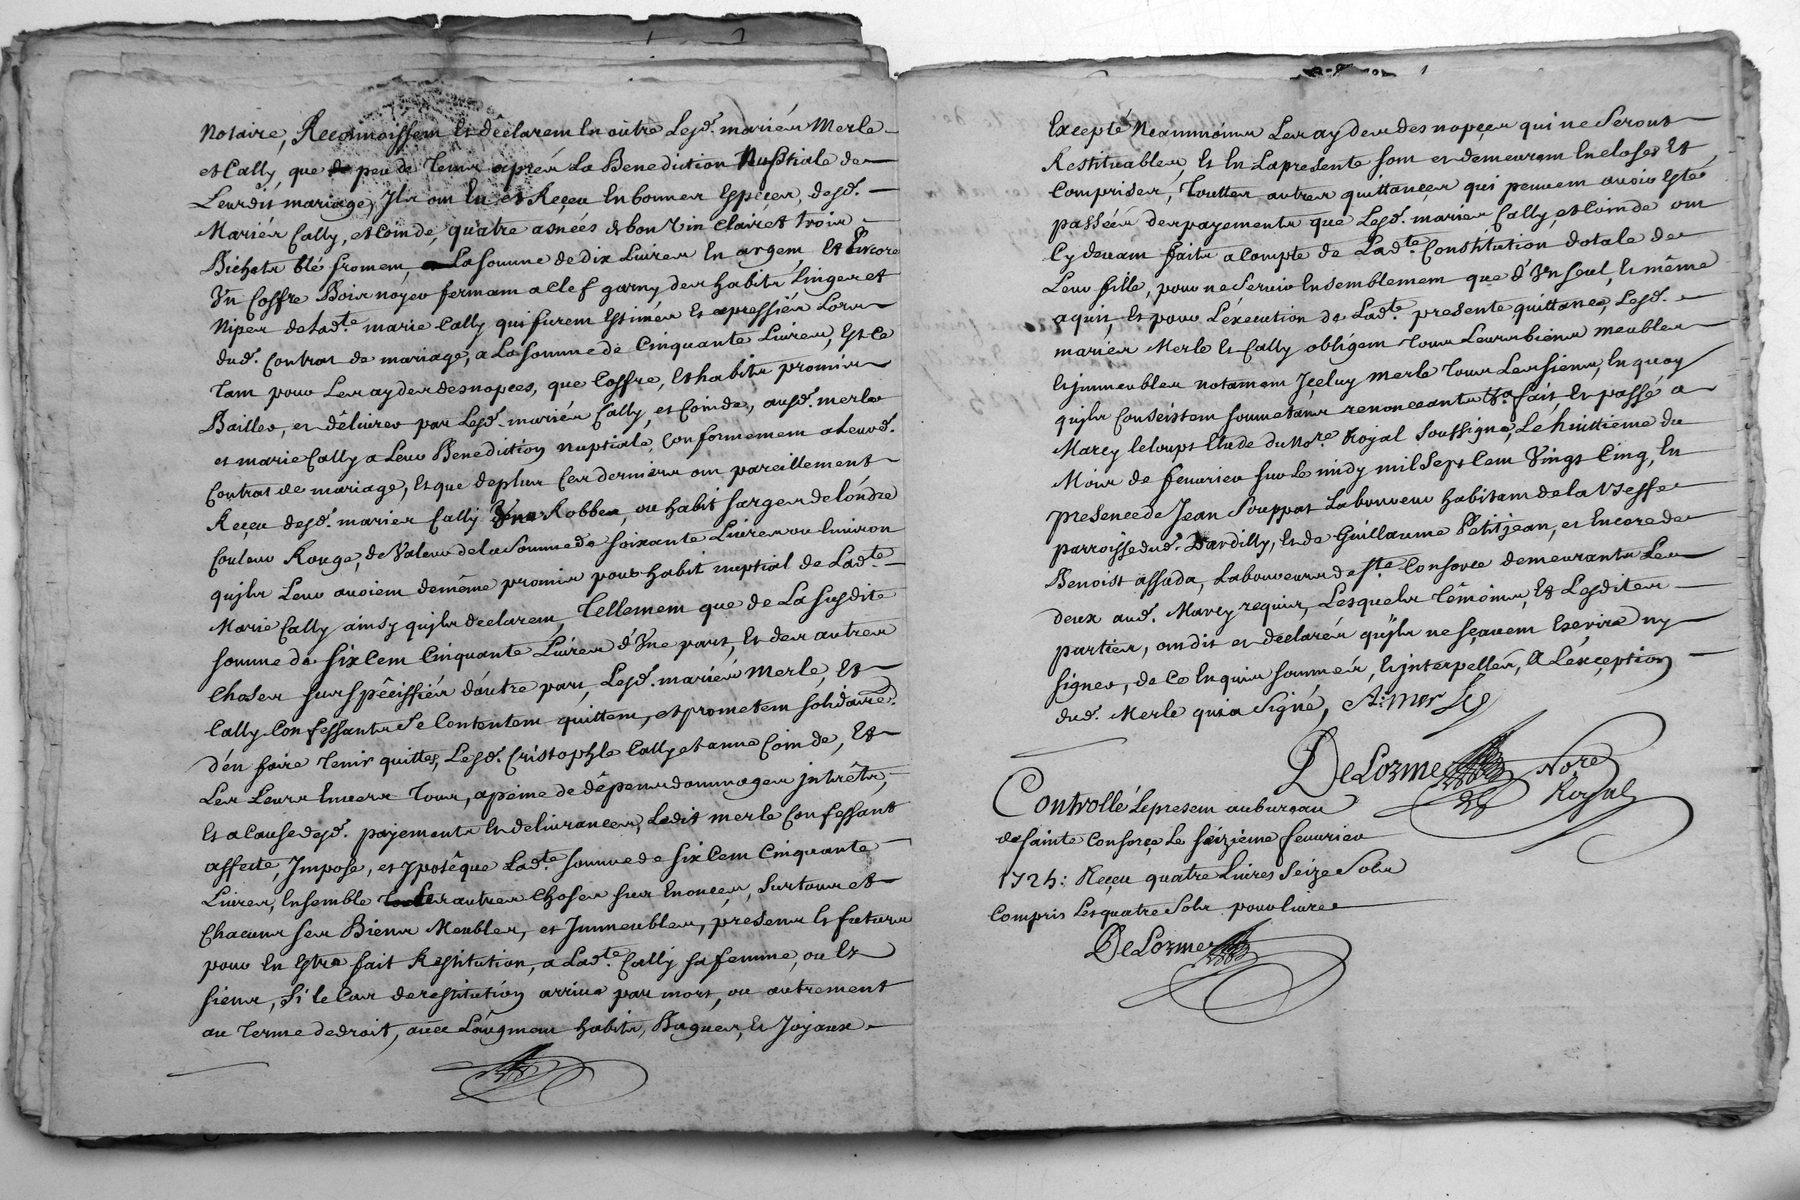 Notaire, Reconnoissem Et declarem En oûtre Lesd. mariés Merle
et Cally, que peu de Tems aprés La Benediction Nuptiale de
Leurdit mariage, Ils on Eu et Reçeu En bonnes Espeçes, desd.
Mariés Cally, et Coinde, quatre asnées de bon Vin Clairet trois
Bichets blé fromem, La somme de dix Livres En argem, Et Encore
Vn Coffre Bois noyer fermam a Clef garny des habits Linges et
Nipes de Ladte. marie Cally qui furem Estimés Et apressiés Lors
dud. Contrat de mariage, a La somme de Cinquante Livres, Est Ce
Tam pour Les aydes des nopces, que Coffre, Et habits promis
Bailler, et délivrer par Lesd. mariés Cally, et Coinde, ausd. merle
et marie Cally a Leur Benediction nuptiale, Conformemem a Leurd.
Contrat de mariage, Et que deplus Ces derniers on pareillement
Reçeu desd. mariés Cally Vne Robbe, ou habit sarges de Lóndre
Couleur Rouge, de Valeur de La somme de soixante Livres ou Environ
quils Leur avoiem demême promis pour habit nuptial de Ladte.
Marie Cally ainsy quils declarem, Tellemem que de La susdite
somme de six Cem Cinquante Livres d'Vne part, Et des autres
Choses sus spéciffiés d'autre part, Lesd. mariés Merle, Et
Cally Confessants Se Contentem quittem, et prometem solidaire.
d'en faire Tenir quittes, Lesd. Cristophle Cally et anne Coinde, Et
Les Leurs Envers Tous, apeine de dépens dommages intrêts,
Et a Cause desd. payements Et delivrances, Ledit merle Confessant
affecte, Impose, et ypotêque Ladte. somme de six Cem Cinquante
Livres, Ensemble Les autres Choses sus Enonçes, sur tous et
Chacuns ses Biens Meubles, et Immeubles, presens Et futurs
pour En Estre fait Restitution, a Ladte. Cally sa femme, ou Es
siens, Si le Cas de restitution arrive par mort, ou autrement
au Terme de droit, avec L'augmem habits, Bagues, Et Joyaux
Excepté Neammóins Les aydes des nopçes qui ne Seront
Restituables, Et En La presente som et demeurem Encloses Et
Comprises, Touttes autres quittançes qui peuvem avoir Esté
passées des payements que Lesd. mariés Cally, et Coinde on
Cy devam faits a Compte de Ladte. Constitution dotale de
Leur fille, pour ne Servir Ensemblemem que d'Vn seul, Et même
aquit, Et pour L'execution de Ladte. presente quittance, Lesd.
mariés Merle Et Cally obligem Tous Leurs biens meubles
Et immeubles notamem Iceluy Merle Tous Les siens, En quoy
quils Consistem soumetans renonceants &a. fait Et passé a
Marcy leloup Etude du Nore. Royal Soussigné, Le huittiéme du
Mois de fevrier sur Le midy mil Sept Cem Vingt Cinq, En
presence de Jean Souppat Laboureur habitam de la Vesse
parroisse dud. Dardilly, Et de Guillaume Petitjean, et Encore de
Benoist assada, Laboureurs de Ste. Consorce demeurants Les
deux aud. Marcy requis, Lesquels Témoins, Et Lesdites
parties, on dit et declarés quils ne sçavem Escrire ny
signer, de Ce Enquis sommés, Et interpellés, A L'exçeption
dud. Merle qui a Signé, A. Merle
DeLorme Nore
Royal
Controllé Le presem au bureau
de sainte Consorce Le séizieme fevrier
1725: Reçeu quatre Livres Seize Sols
Compris Les quatre Sols pour livre
DeLorme